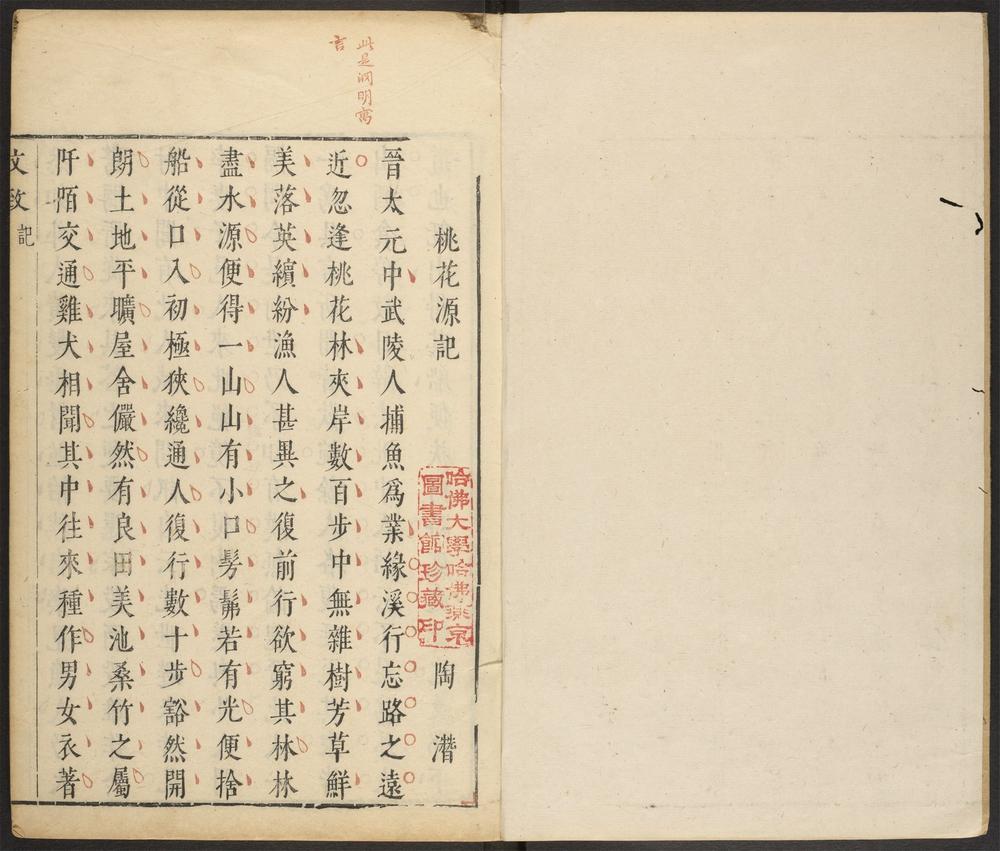 此是淵明寓
言
桃花源記 陶潛
晉太元中武陵人捕魚為業緣溪行忘路之遠
近忽逢桃花林夾岸數百步中無雜樹芳草鮮
美落英繽紛漁人甚異之復前行欲窮其林林
盡水源便得一山山有小口髣髴若有光便捨
船從口入初極狹纔通人復行數十步豁然開
朗土地平曠屋舍儼然有良田美池桑竹之屬
阡陌交通雞犬相聞其中往來種作男女衣著
文致 記
哈佛大學哈佛燕京
圖書館珍藏印